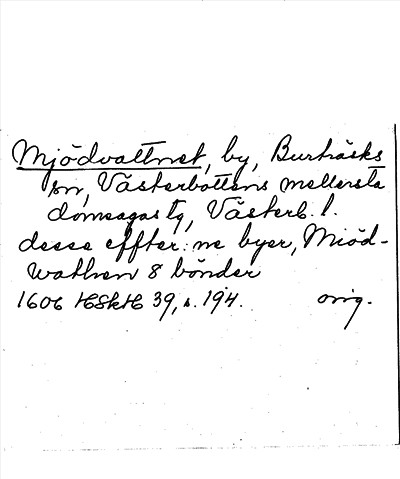 Mjödvattnet, by, Burträsks
sn, Västerbottens mellersta
domsagas tg, Västerb. l.
desse effter:ne byer, Miöd-
wathen 8 bönder
1606 HSkH 39, s. 194. orig.